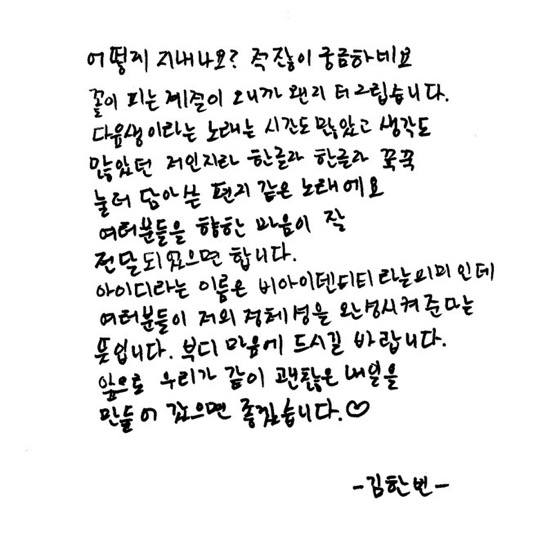 어떻게 지내나요? 적잖이 궁금하네요
꽃이 피는 계절이 오니까 왠지 더 그립습니다.
다음생이라는 노래는 시간도 많았고 생각도
많았던 저인지라 한글자 한글자 꾹꾹
눌러 담아 쓴 편지 같은 노래에요
여러분들을 향한 마음이 잘
전달되었으면 합니다.
아이디라는 이름은 비아이덴티티 라는의미 인데
여러분들이 저의 정체성을 완성시켜 준다는
뜻입니다. 부디 마음에 드시길 바랍니다.
앞으로 우리가 같이 괜찮은 내일을
만들어 갔으면 좋겠습니다.♡
-김한빈-